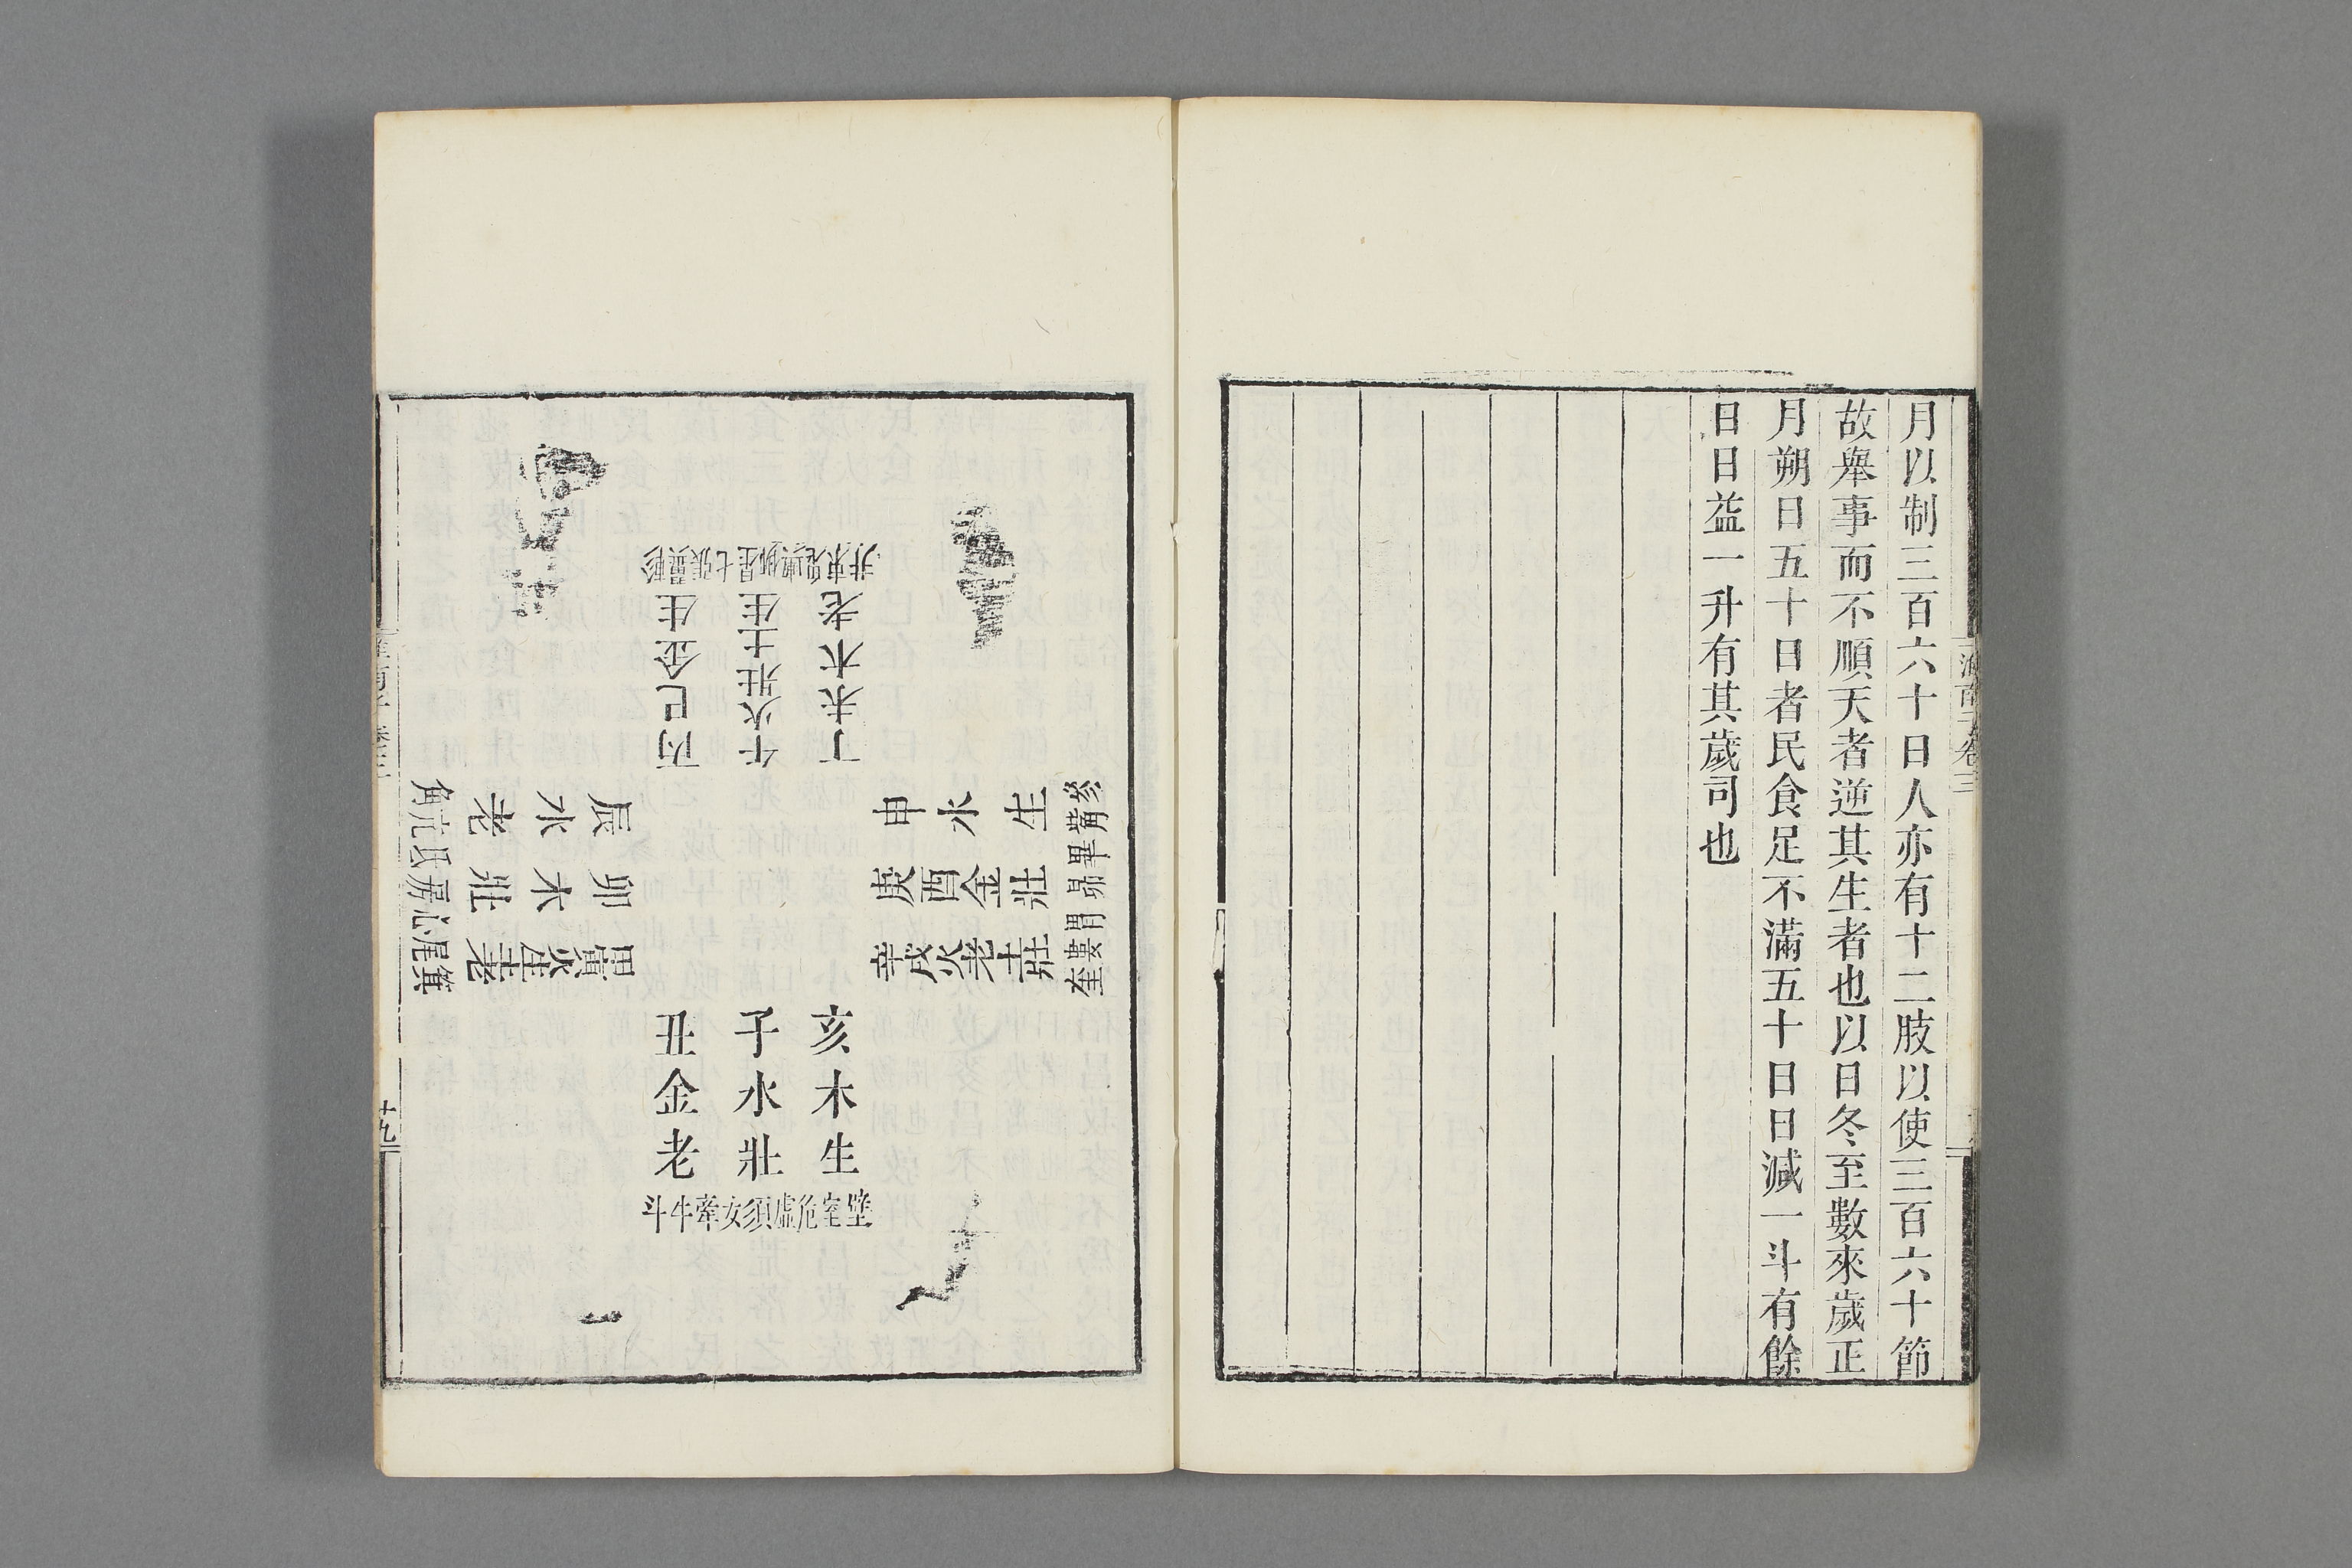 月以制三百六十日人亦有十二肢以使三百六十節
故舉事而不順天者逆其生者也以日冬至數來歲正
月朔日五十日者民食足不滿五十日日減一斗有餘
日日益一升有其歲司也
淮南子卷三
井東鬼輿柳星七張翼軫
丁未木老
午火壯土生
丙巳金生
申水生
庚酉金壯
辛戌火老土壯
參觜畢昴胃婁奎
亥木生
子水壯
丑金老
斗牛牽女須虛危室壁
辰水老
卯木壯
甲寅火生土老
角亢氐房心尾箕
淮南子卷三
十九